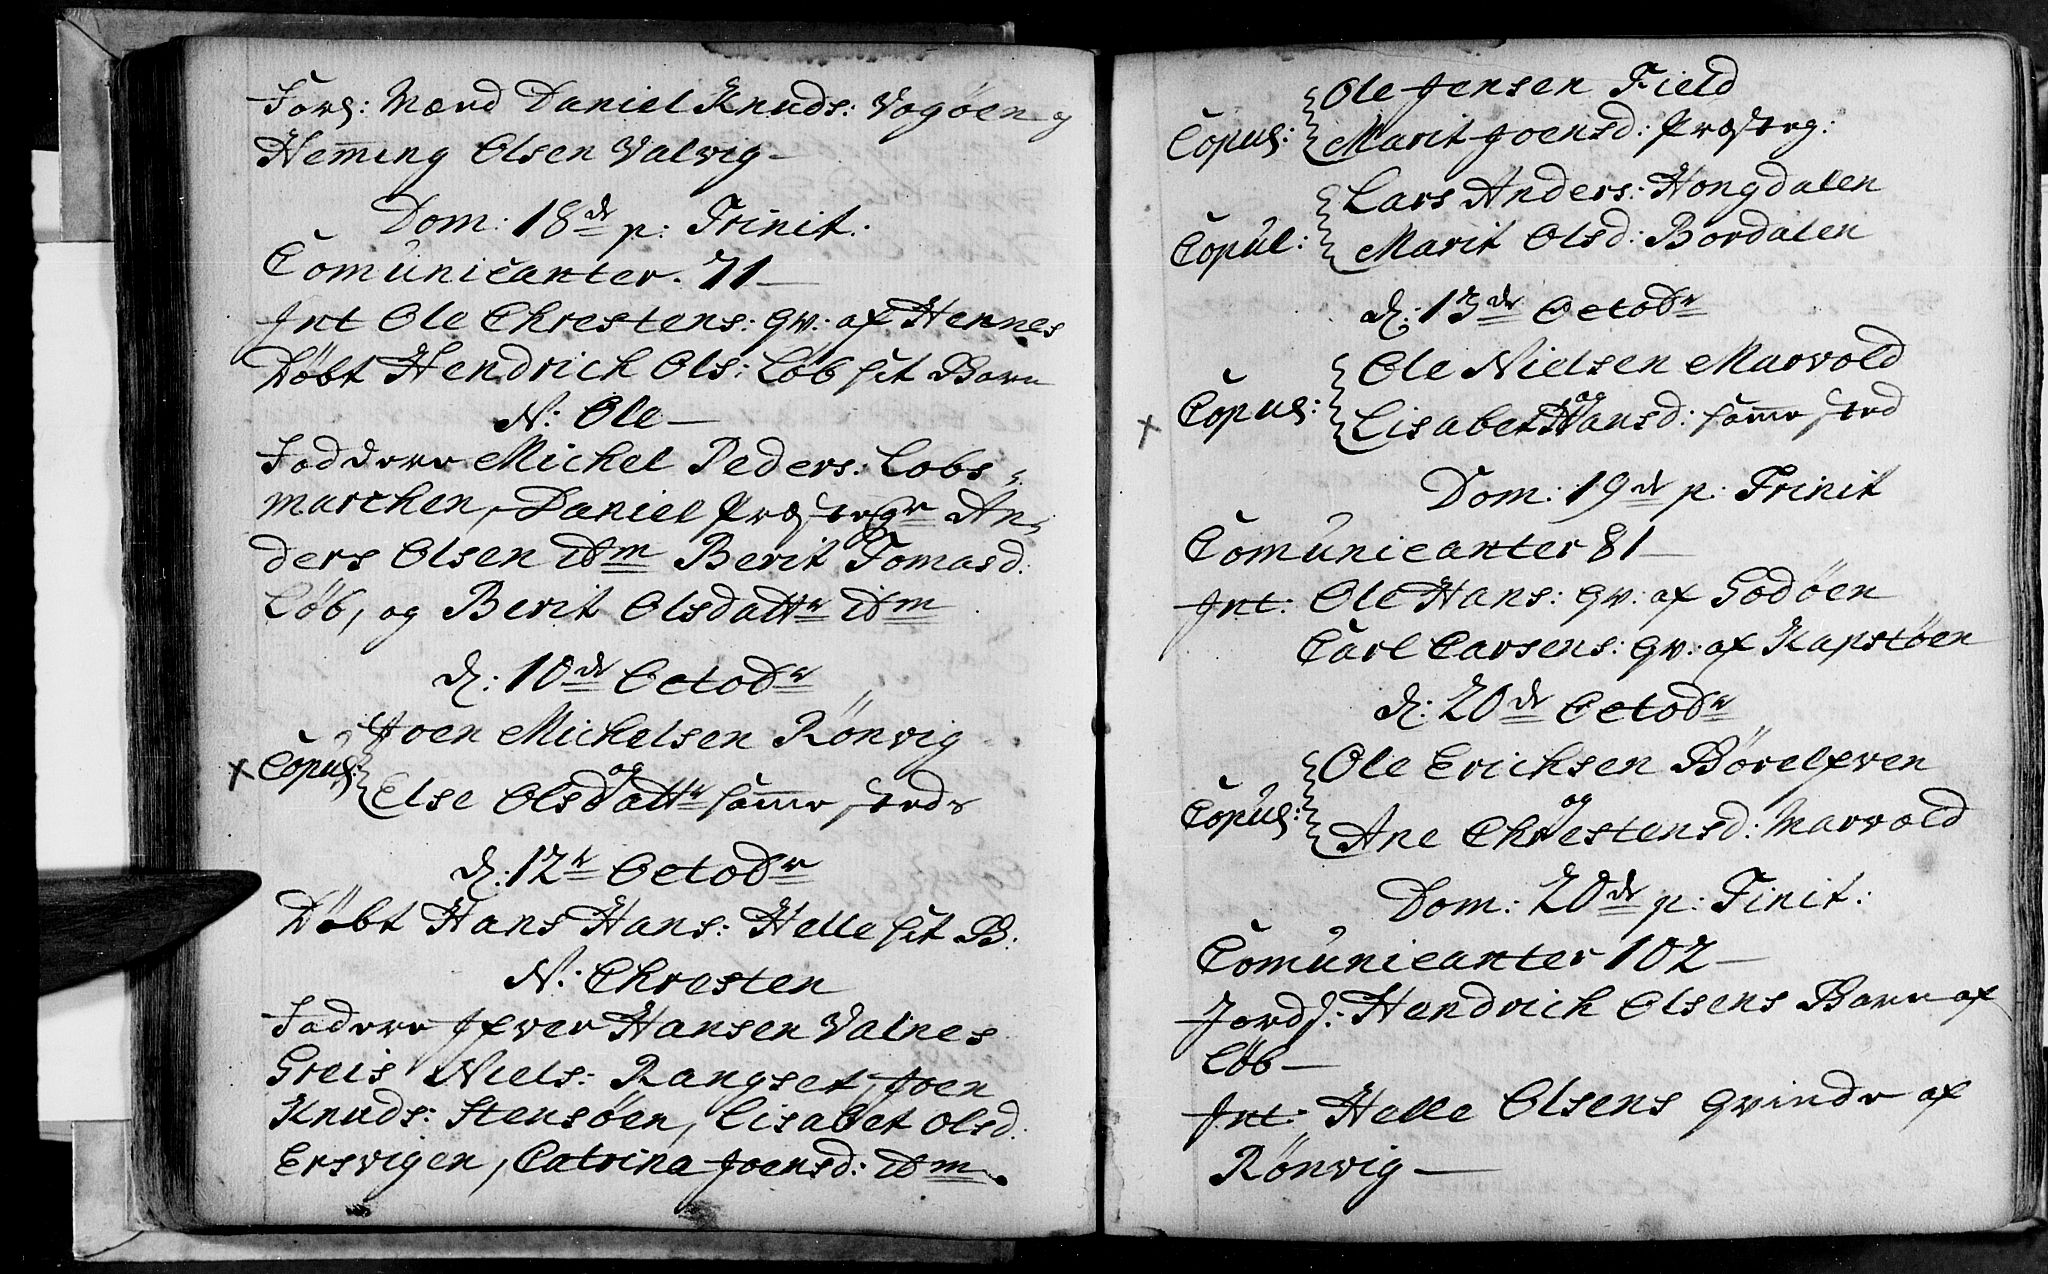 Forl: Mænd Daniel Knuds: Vogøen og
Hem̅ing Olsen Valvig —
Dom: 18de p: Trinit:
Com̅unicanter. 71 —
Int Ole Chrestens: qv: af Hernes
Døbt Hendrich Ols: Løb sit Barn
N: Ole —
Faddere Michel Peders: Løbs-
marchen, Daniel Præstegr An-
ders Olsen Ibm Berit Tomasd:
Løb, og Berit Olsdattr Ibm
d: 10de Octobr
Joen Michelsen Rönvig
× Copul: og
Else Olsdattr sam̅e steds
d: 12te Octobr
Døbt Hans Hans: Helle sit B.
N: Chresten
Fadere Ifver Hansen Valnes
Greis Niels: Rangset, Joen
Knuds: Stensöen, Lisabet Olsd:
Ersvigen, Catrina Joensd: Ibm.
Ole Jensen Field
Copul: Marit Joensd: Præsteg:
Lars Anders: Hongdalen
Copul: Marit Olsd: Bordalen
d: 13de Octobr
Ole Nielsen Marvold
× Copul: og
Lisabet Hansd: sam̅e sted
Dom: 19de p: Trinit
Com̅unicanter 81 —
Int: Ole Hans: qv: af Godöen
Carl Carsens: qv: af Kapstöen
d: 20de Octobr
Ole Erichsen Börelfven
Copul: og
Ane Chrestensd: Marvold
Dom: 20de p: Tinit:
Com̅unicanter 102 —
Jords: Hendrich Olsens Barn af
Løb —
Int: Helle Olsens qvinde af
Rönvig —